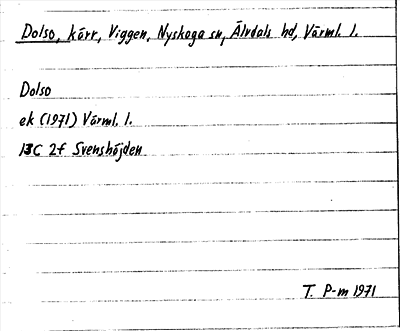 Dolso, kärr, Viggen, Nyskoga sn, Älvdals hd, Värml. l.
Dolso
ek (1971) Värml. l.
13C 2f Svenshöjden
T. P-m 1971